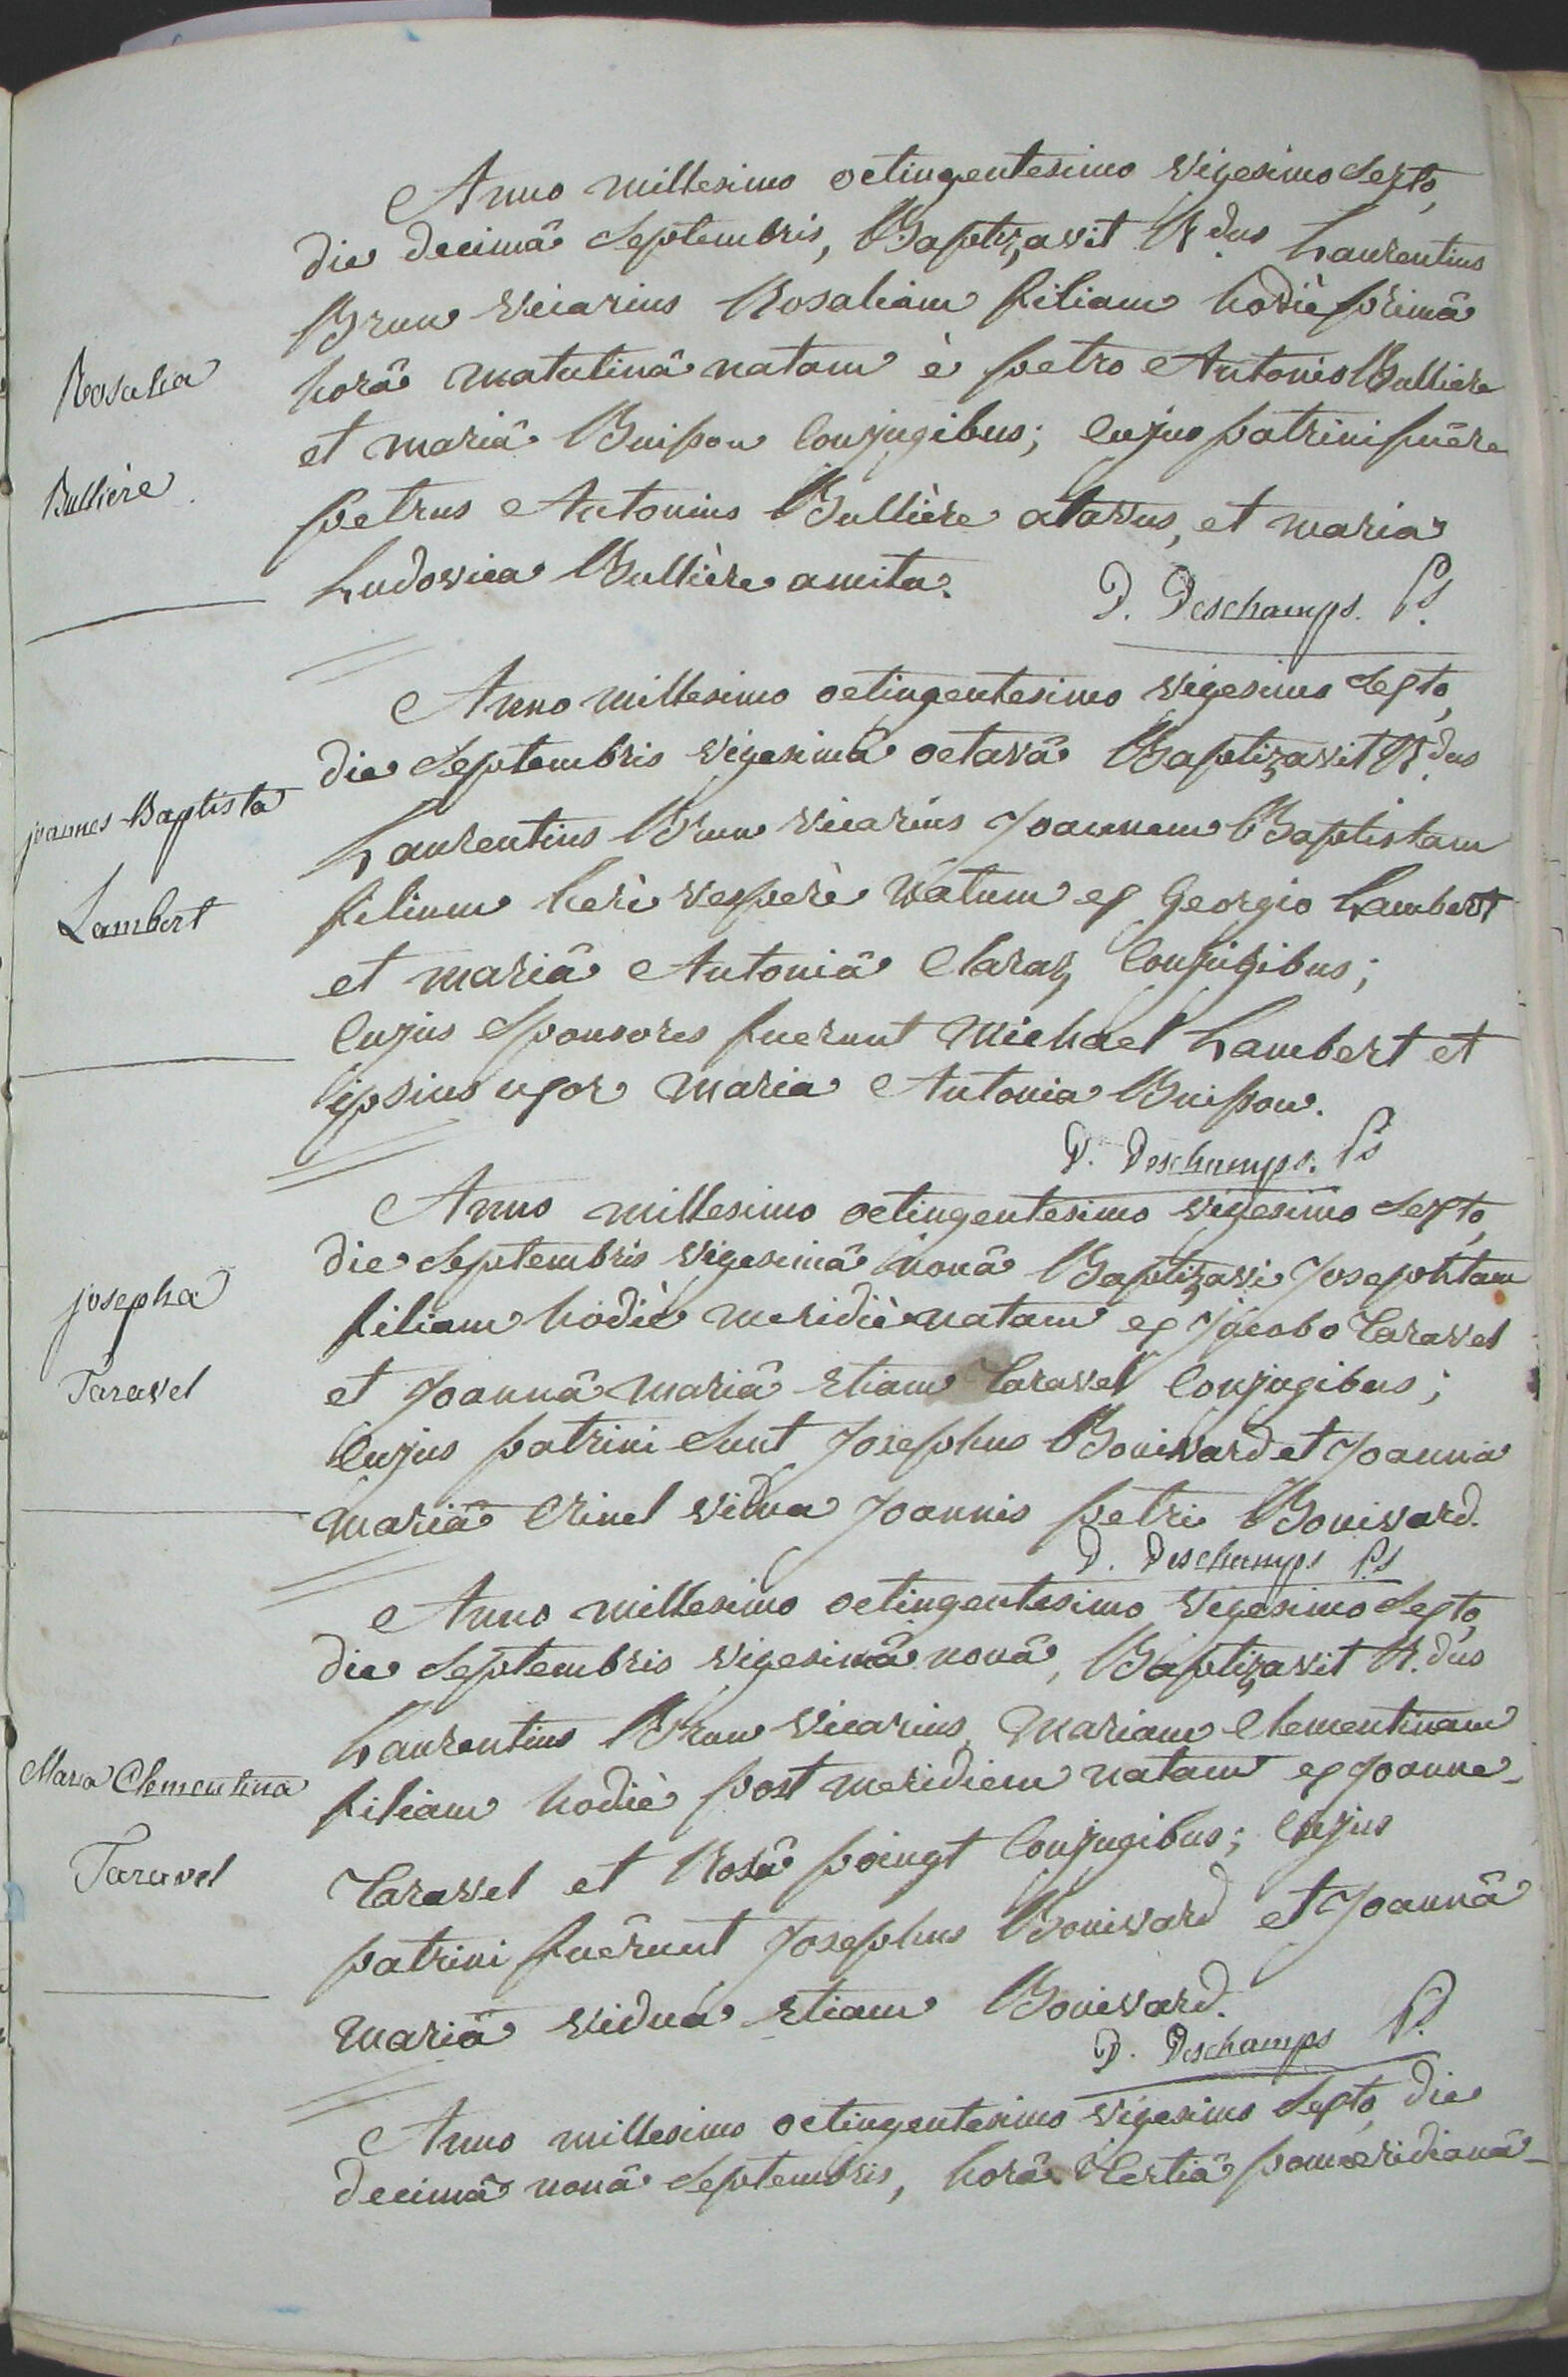 Anno millesimo octingentesimo vigesimo sexto,
die decimâ Septembris, Baptizavit R.dus Laurentius
Brun vicarius Rosaliam filiam hodiè primâ
Rosalia
horâ matutinâ natam è petro Antonio Bullière
et mariâ Buisson Conjugibus; Cujus patrini fuêre
Bullière.
petrus Antonius Bullière atavus, et maria
Ludovica Bullière amita.
D. Deschamps. P.
Anno millesimo octingentesimo vigesimo Sexto,
die Septembris vigesimâ octavâ Baptizavit R.dus
joannes Baptista
Laurentius Brun vicarius Joannem Baptistam
filium heri vesperè natum ex Georgio Lambert
Lambert
et mariâ Antoniâ Claraz Conjugibus;
Cujus Sponsores fuerunt Michael Lambert et
ipsius uxor Maria Antonia Buisson.
D. Deschamps. P.
Anno millesimo octingentesimo vigesimo Sexto,
die Septembris vigesimâ nonâ Baptizavi Josephtam
josepha
filiam hodiè meridiè natam ex Jacobo Taravel
Taravel
et Joannâ mariâ etiam Taravel Conjugibus;
Cujus patrini Sunt Josephus Bonivard et Joanna
mariâ Crinel vidua Joannis petri Bonivard.
D. Deschamps P.
Anno millesimo octingentesimo vigesimo Sexto,
die Septembris vigesimâ nonâ, Baptizavit R.dus
Laurentius Brun vicarius, Mariam Clementinam
Maria Clementina
filiam hodiè post meridiem natam ex Joanne
Taravel
Taravel et Rosâ poingt Conjugibus; Cujus
patrini fuêrunt Josephus Bonivard et Joannâ
mariâ vidua etiam Bonivard.
D. Deschamps P.
Anno millesimo octingentesimo vigesimo Sexto, die
decimâ nonâ Septembris, horâ Tertiâ pomeridianâ